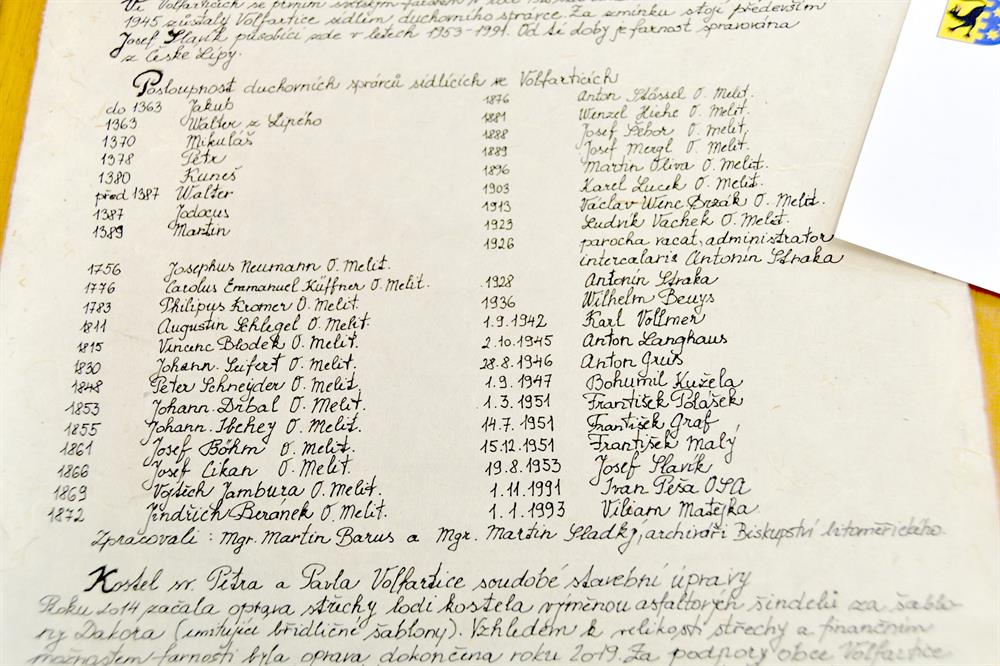 Ve Volfarticích se prvním světským farářem v roce
1945 zůstaly Volfartice sídlem duchovního správce. Za zmínku stojí především
Josef Slavík působící zde v letech 1953-1991. Od té doby je farnost spravována
z České Lípy.
Posloupnost duchovních správců sídlících ve Volfarticích
do 1363 Jakub
1363 Walter z Lipého
1370 Mikuláš
1378 Petr
1380 Kuneš
před 1387 Walter
1387 Jodocus
1389 Martin
1756 Josephus Neumann O. Melit.
1776 Carolus Emmanuel Küffner O. Melit.
1783 Philipus Kromer O. Melit.
1811 Augustin Schlegel O. Melit.
1815 Vincenc Blodek O. Melit.
1830 Johann. Seifert O. Melit.
1848 Peter Schneyder O. Melit.
1853 Johann. Drbal O. Melit.
1855 Johann. Tbchey O. Melit.
1861 Josef Böhm O. Melit.
1866 Josef Cikan O. Melit.
1869 Vojtěch Jambura O. Melit.
1872 Jindřich Beranek O. Melit.
1876 Anton Stössel O. Melit.
1881 Wenzel Hiehe O. Melit.
1888 Josef Šebor O. Melit.
1889 Josef Mergl O. Melit.
1896 Martin Oliva O. Melit.
1903 Karel Lucek O. Melit.
1913 Václav Wenc Brzák O. Melit.
1923 Ludvík Vachek O. Melit.
1926 parocha vacat, administrator
intercalaris Antonín Straka
1928 Antonín Straka
1936 Wilhelm Beuys
1.9.1942 Karl Vollmer
2.10.1945 Anton Langhaus
28.8.1946 Anton Grus
1.9.1947 Bohumil Kužela
1.3.1951 František Polášek
14.7.1951 František Graf
15.12.1951 František Malý
19.8.1953 Josef Slavík
1.11.1991 Ivan Peša OSA
1.1.1993 Viliam Matejka
Zpracovali: Mgr. Martin Barus a Mgr. Martin Sladký, archiváři Biskupství litoměřického.
Kostel sv. Petra a Pavla Volfartice soudobé stavební úpravy
Roku 2014 začala oprava střechy lodi kostela výměnou asfaltových šindelů za šablo-
ny Dakora (imitující břidličné šablony). Vzhledem k velikosti střechy a finančním
možnostem farnosti byla oprava dokončena roku 2019. Za podpory obce Volfartice